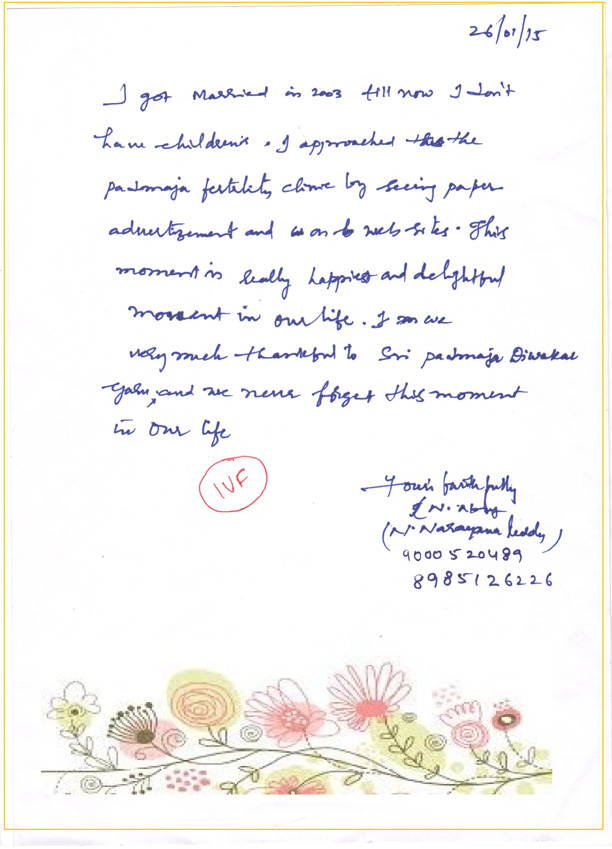 26/01/15
I got Married in 2003 till now I don't
have children's. I approached the
padmaja fertility clinic by seeing paper
advertizement and on web-sites. This
moment is really happiest and delightful
moment in our life. I we
very much thankful to Sri padmaja Diwakar
garu, and we never forget this moment
in our life
IVF
Yours faithfully
(N. Narayana Reddy)
9000520489
8985126226